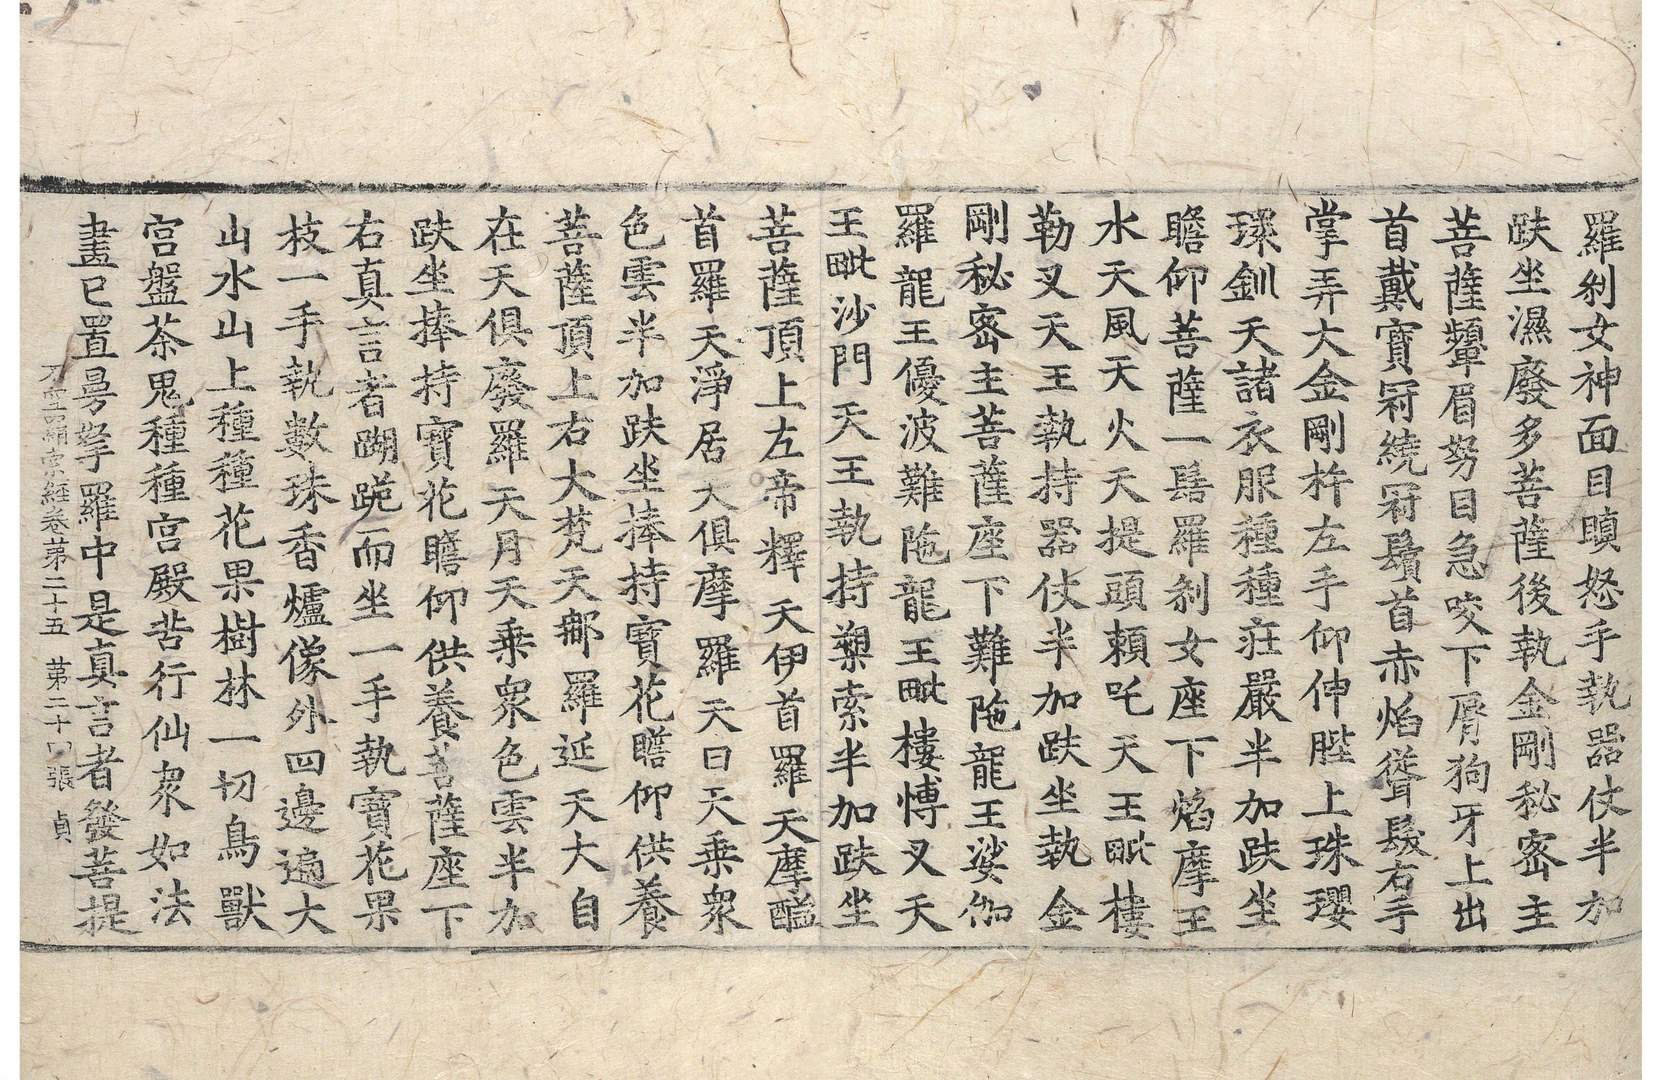 羅刹女神面目瞋怒手執器仗半加
趺坐濕廢多菩薩後執金剛秘密主
菩薩顰眉努目急咬下脣狗牙上出
首戴寶冠繞冠鬚首赤焰聳髮右手
掌弄大金剛杵左手仰伸䏶上珠瓔
環釧天諸衣服種種莊嚴半加趺坐
瞻仰菩薩一髻羅刹女座下焰摩王
水天風天火天提頭賴吒天王毗樓
勒叉天王執持器仗半加趺坐執金
剛秘密主菩薩座下難陁龍王娑伽
羅龍王優波難陁龍王毗樓博叉天
王毗沙門天王執持槊索半加趺坐
菩薩頂上左帝釋天伊首羅天摩醯
首羅天淨居天俱摩羅天日天乗衆
色雲半加趺坐捧持寶花瞻仰供養
菩薩頂上右大梵天那羅延天大自
在天俱廢羅天月天乗衆色雲半加
趺坐捧持寶花瞻仰供養菩薩座下
右真言者蹋跪而坐一手執寶花果
枝一手執數珠香爐像外四邊遍大
山水山上種種花果樹林一切鳥獸
宮盤茶鬼種種宮殿苦行仙衆如法
畫已置曼拏羅中是真言者發菩提
不空羂索經卷第二十五 第二十四張 貞